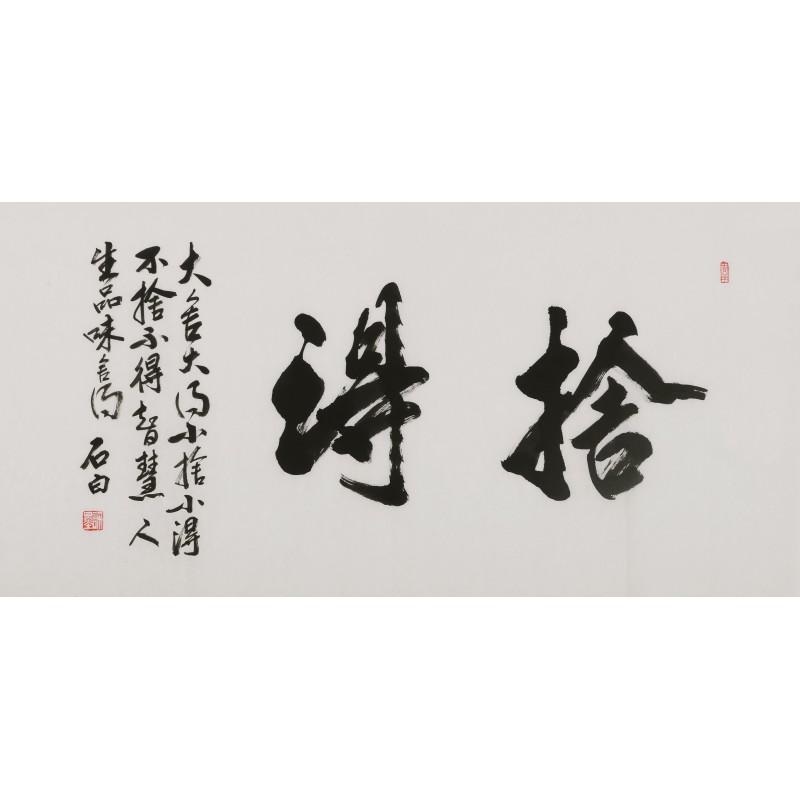 捨得
大舍大得小捨小得
不捨不得智慧人
生品味舍得
石白